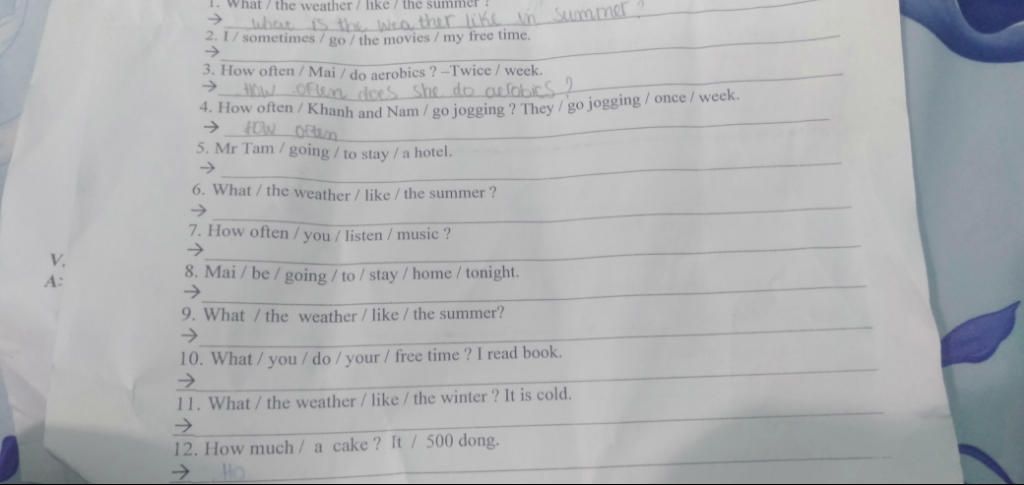 1. What / the weather / like / the summer ?
→ what is the weather like in summer?
2. I / sometimes / go / the movies / my free time.
→
3. How often / Mai / do aerobics ? –Twice / week.
→ How often does she do aerobics ?
4. How often / Khanh and Nam / go jogging ? They / go jogging / once / week.
→ How often
5. Mr Tam / going / to stay / a hotel.
→
6. What / the weather / like / the summer ?
→
7. How often / you / listen / music ?
→
V.
8. Mai / be / going / to / stay / home / tonight.
A:
→
9. What / the weather / like / the summer?
→
10. What / you / do / your / free time ? I read book.
→
11. What / the weather / like / the winter ? It is cold.
→
12. How much / a cake ? It / 500 dong.
→ Ho